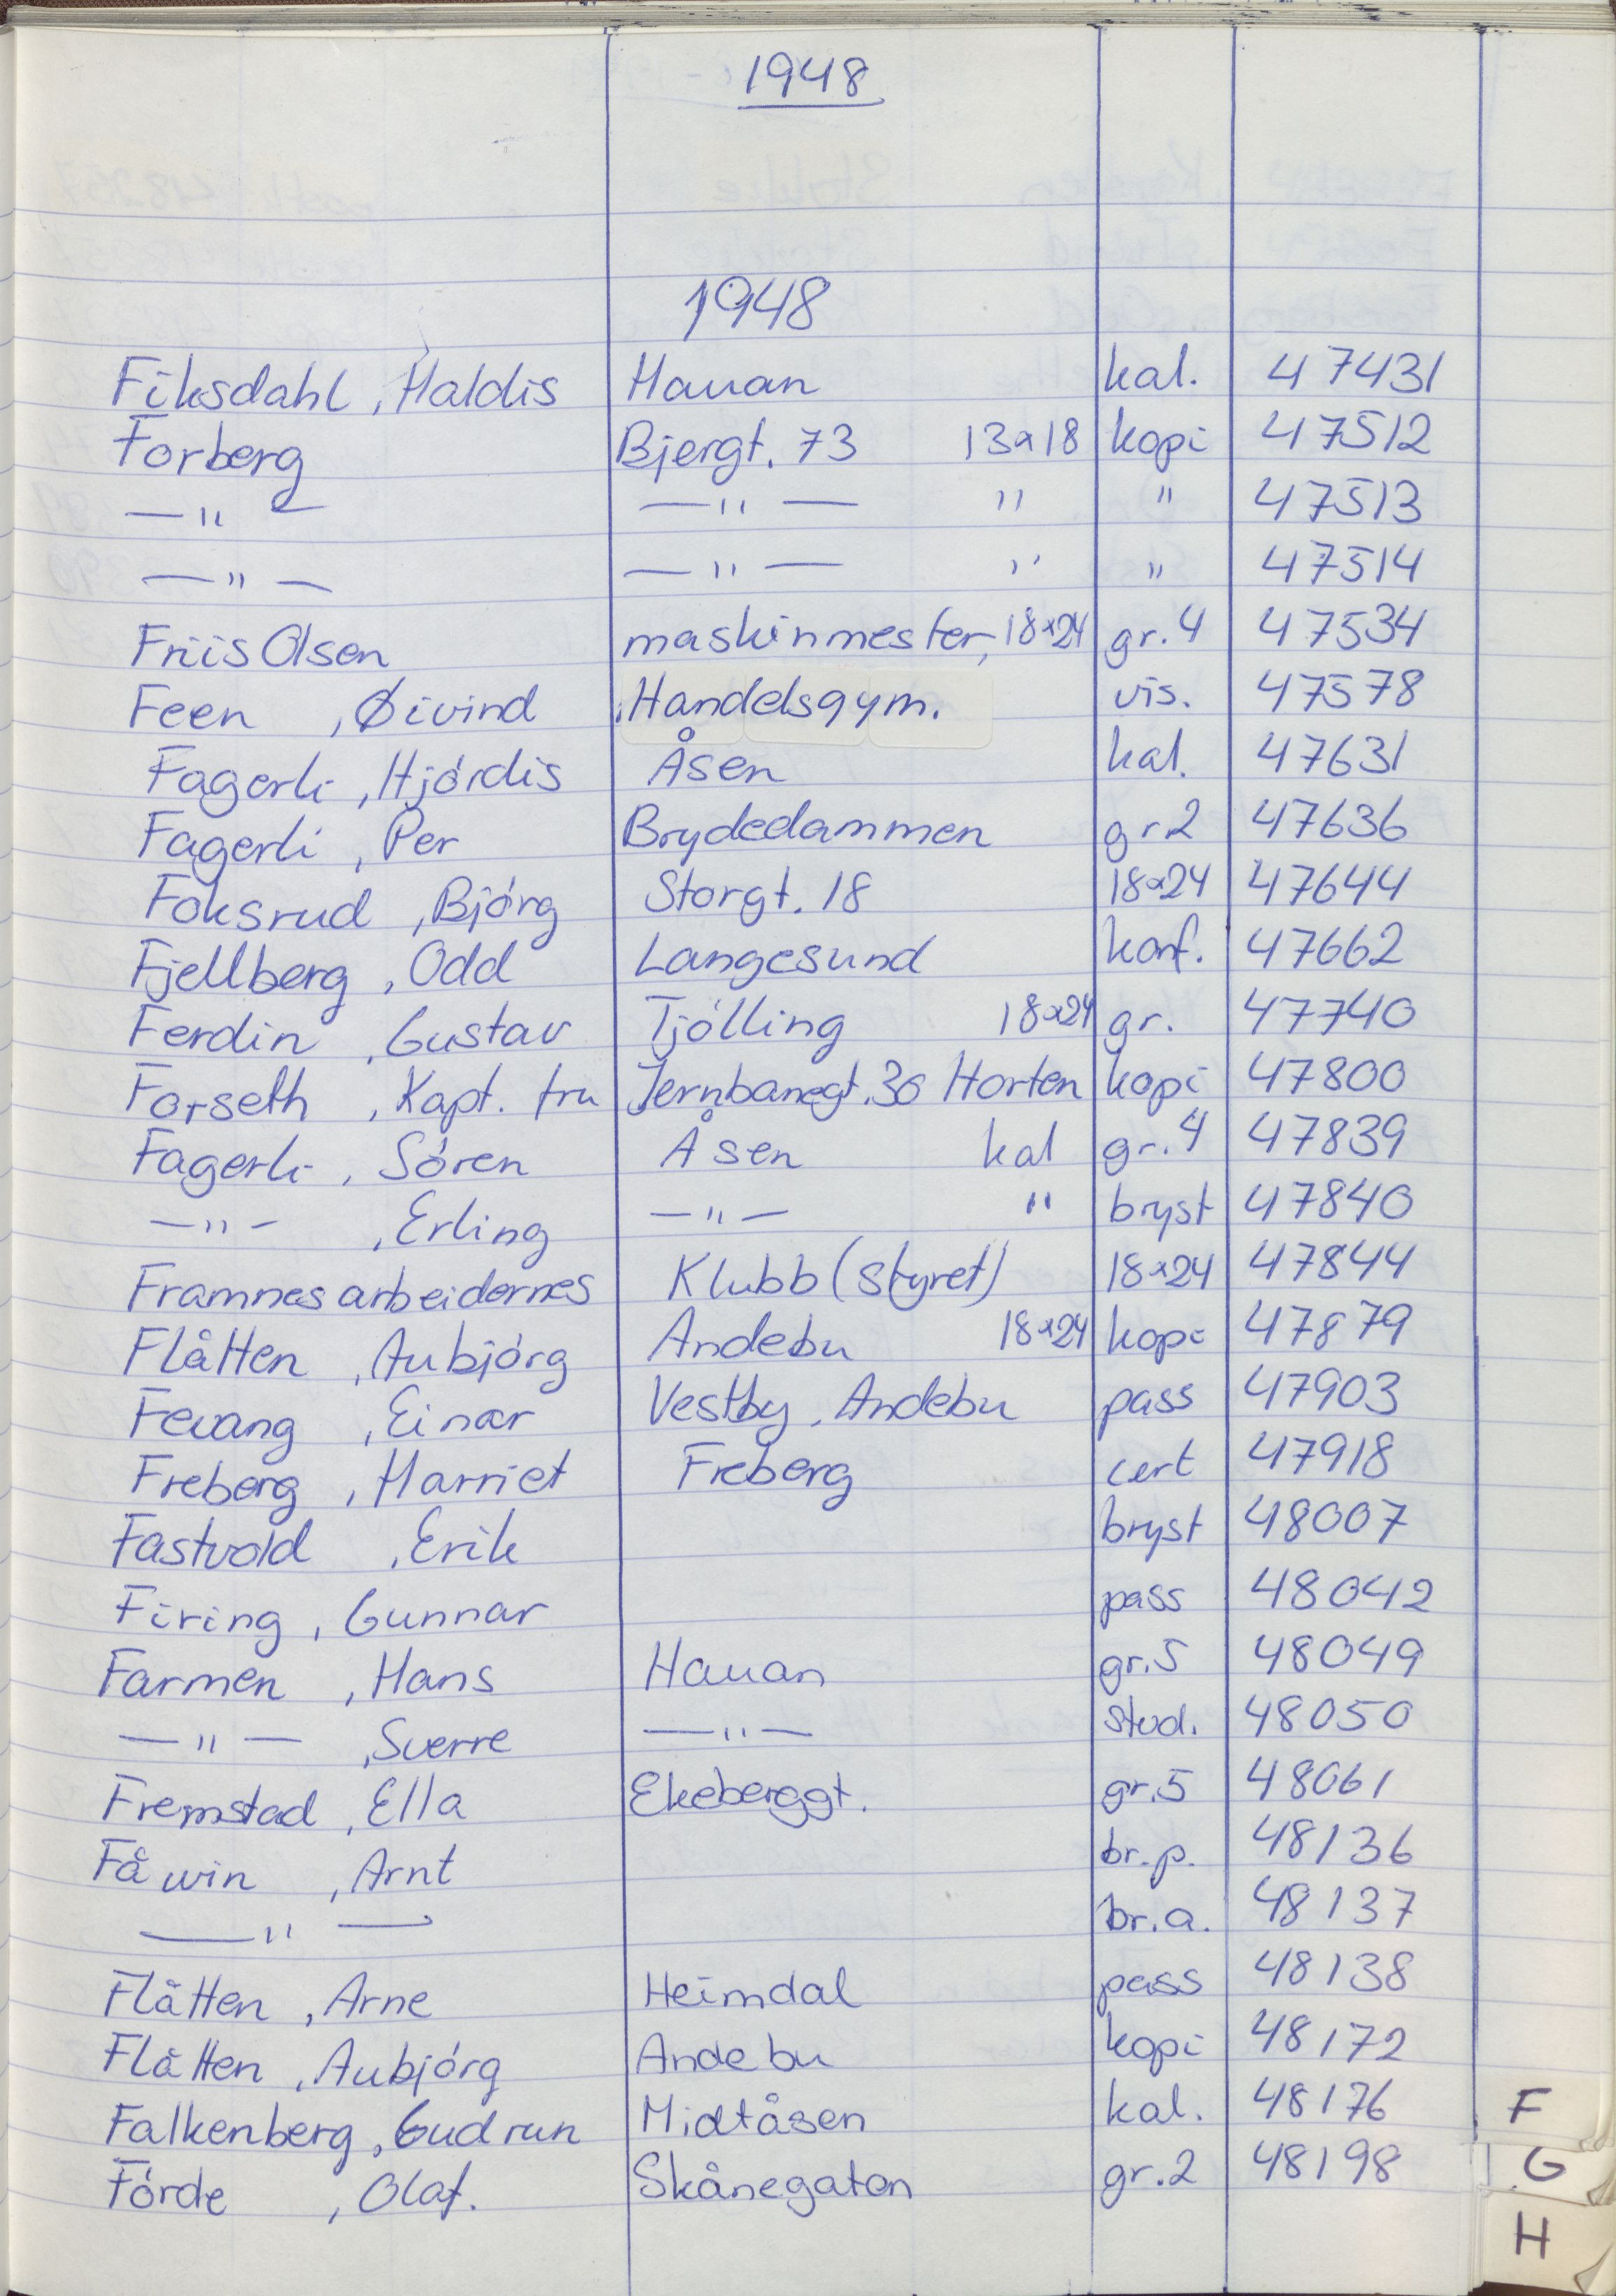 1948
1948
Fiksdahl, Haldis Hauan kal. 47431
Forberg Bjergt. 73 13x18 kopi 47512
—"— —"— " " 47513
—"— —"— " " 47514
Friis Olsen maskinmester, 18x24 gr. 4 47534
Feen , Øivind Handelsgym. vis. 47578
Fagerli , Hjórdis Åsen kal. 47631
Fagerli , Per Brydedammen gr2 47636
Foksrud , Bjórg Storgt. 18 18x24 47644
Fjellberg , Odd Langesund konf. 47662
Ferdin , Gustav Tjólling 18x24 gr. 47740
Forseth , Kapt. fru Jernbanegt. 30 Horten kopi 47800
Fagerli , Sóren Åsen kal gr. 4 47839
—"— , Erling —"— " bryst 47840
Framnesarbeidernes Klubb (styret) 18x24 47844
Flåtten , Aubjórg Andebu 18x24 kopi 47879
Fevang , Einar Vestby, Andebu pass 47903
Freberg , Harriet Freberg cert 47918
Fastvold , Erik bryst 48007
Firing, Gunnar pass 48042
Farmen , Hans Hauan gr. 5 48049
—"— , Sverre —"— stud. 48050
Fremstad , Ella Ekeberggt. gr. 5 48061
Fåwin , Arnt br. p. 48136
—"— br. a. 48137
Flåtten , Arne Heimdal pass 48138
Flåtten , Aubjórg Andebu kopi 48172
Falkenberg, Gudrun Midtåsen kal. 48176
Fórde , Olaf. Skånegaten gr. 2 48198
F
G
H